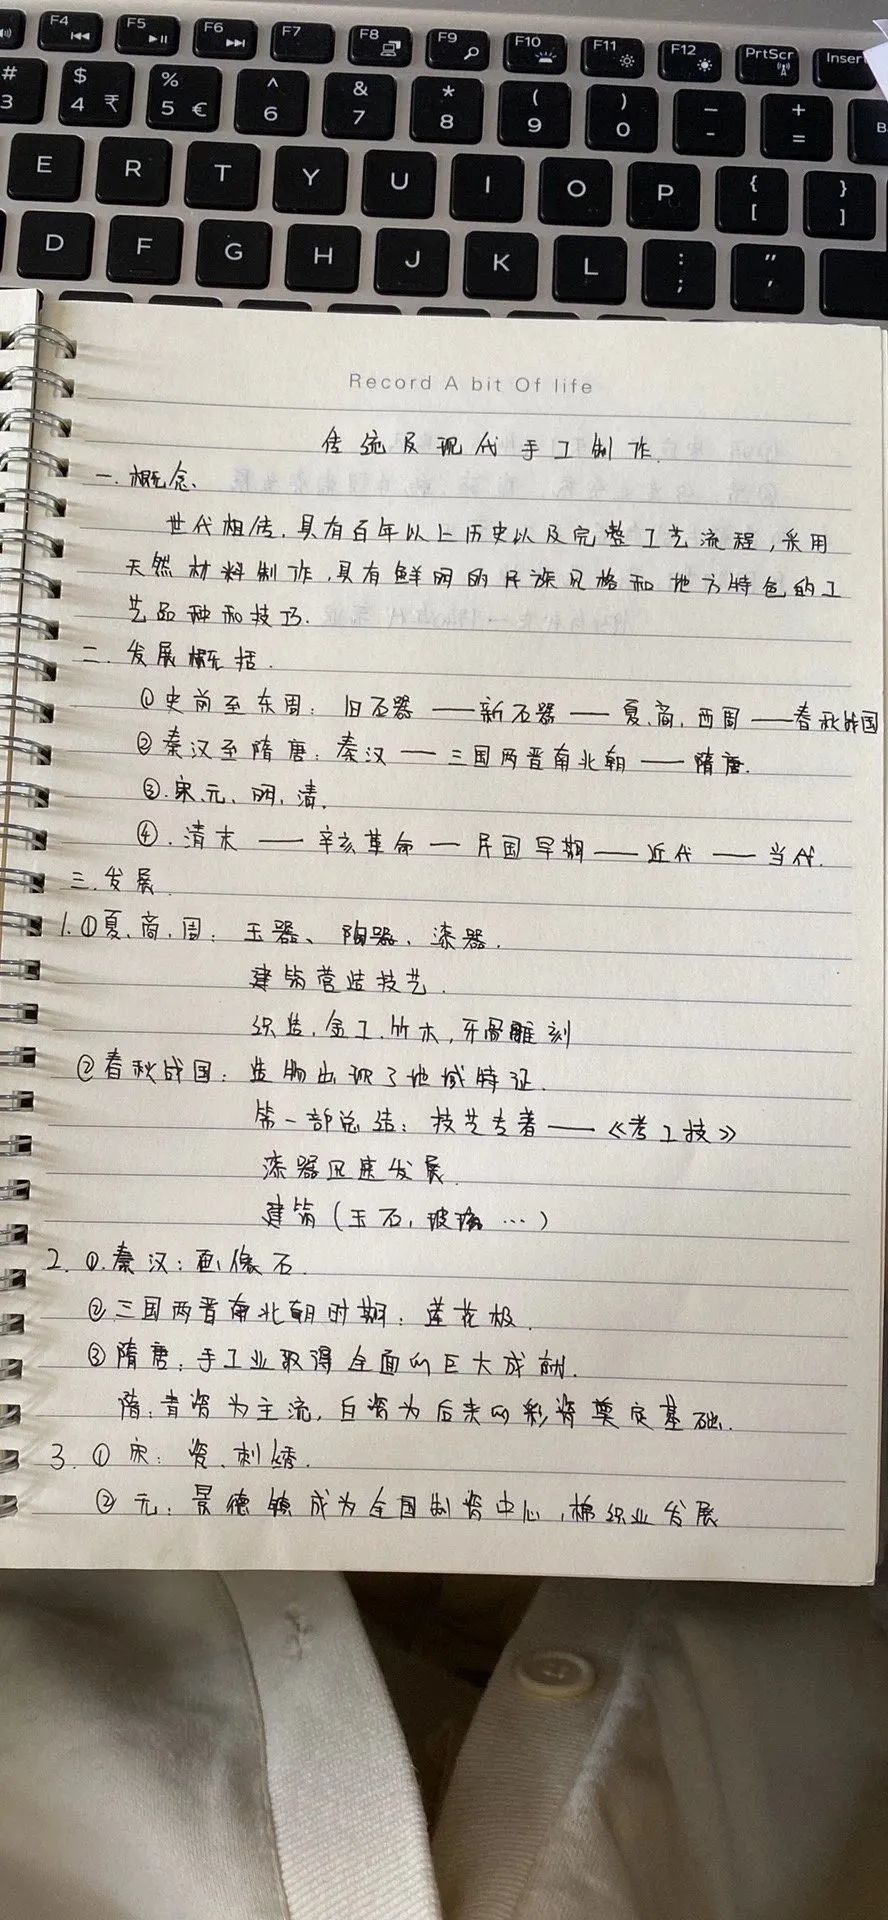 F4 F5 F6 F7 F8 F9 F10 F11 F12 PrtScr Inser
# 3 $ 4 ₹ % 5 € ^ 6 & 7 * 8 ( 9 ) 0 _ - + = B
E R T Y U I O P { [ } ]
D F G H J K L : ; " '
Record A bit Of life
传统及现代手工制作.
一.概念、
世代相传.具有百年以上历史以及完整工艺流程,采用
天然材料制作,具有鲜明的民族风格和地方特色的工
艺品种和技巧.
二.发展概括.
①史前至东周:旧石器——新石器——夏、商、西周——春秋战国
②秦汉至隋唐:秦汉——三国两晋南北朝——隋唐.
③.宋、元、明、清.
④.清末——辛亥革命—民国早期——近代——当代.
三.发展.
1.①夏、商、周:玉器、陶器、漆器.
建筑营造技艺.
织造.金工.竹木,牙骨雕刻
②春秋战国:造物出现了地域特征.
第一部总结:技艺专著——《考工技》
漆器迅速发展.
建筑(玉石,玻璃…)
2.①.秦汉:画像石.
②三国两晋南北朝时期:莲花极.
③隋唐:手工业取得全面的巨大成就.
隋:青瓷为主流,白瓷为后来的彩瓷奠定基础.
3.①宋:瓷、刺绣.
②元:景德镇成为全国制瓷中心,棉织业发展